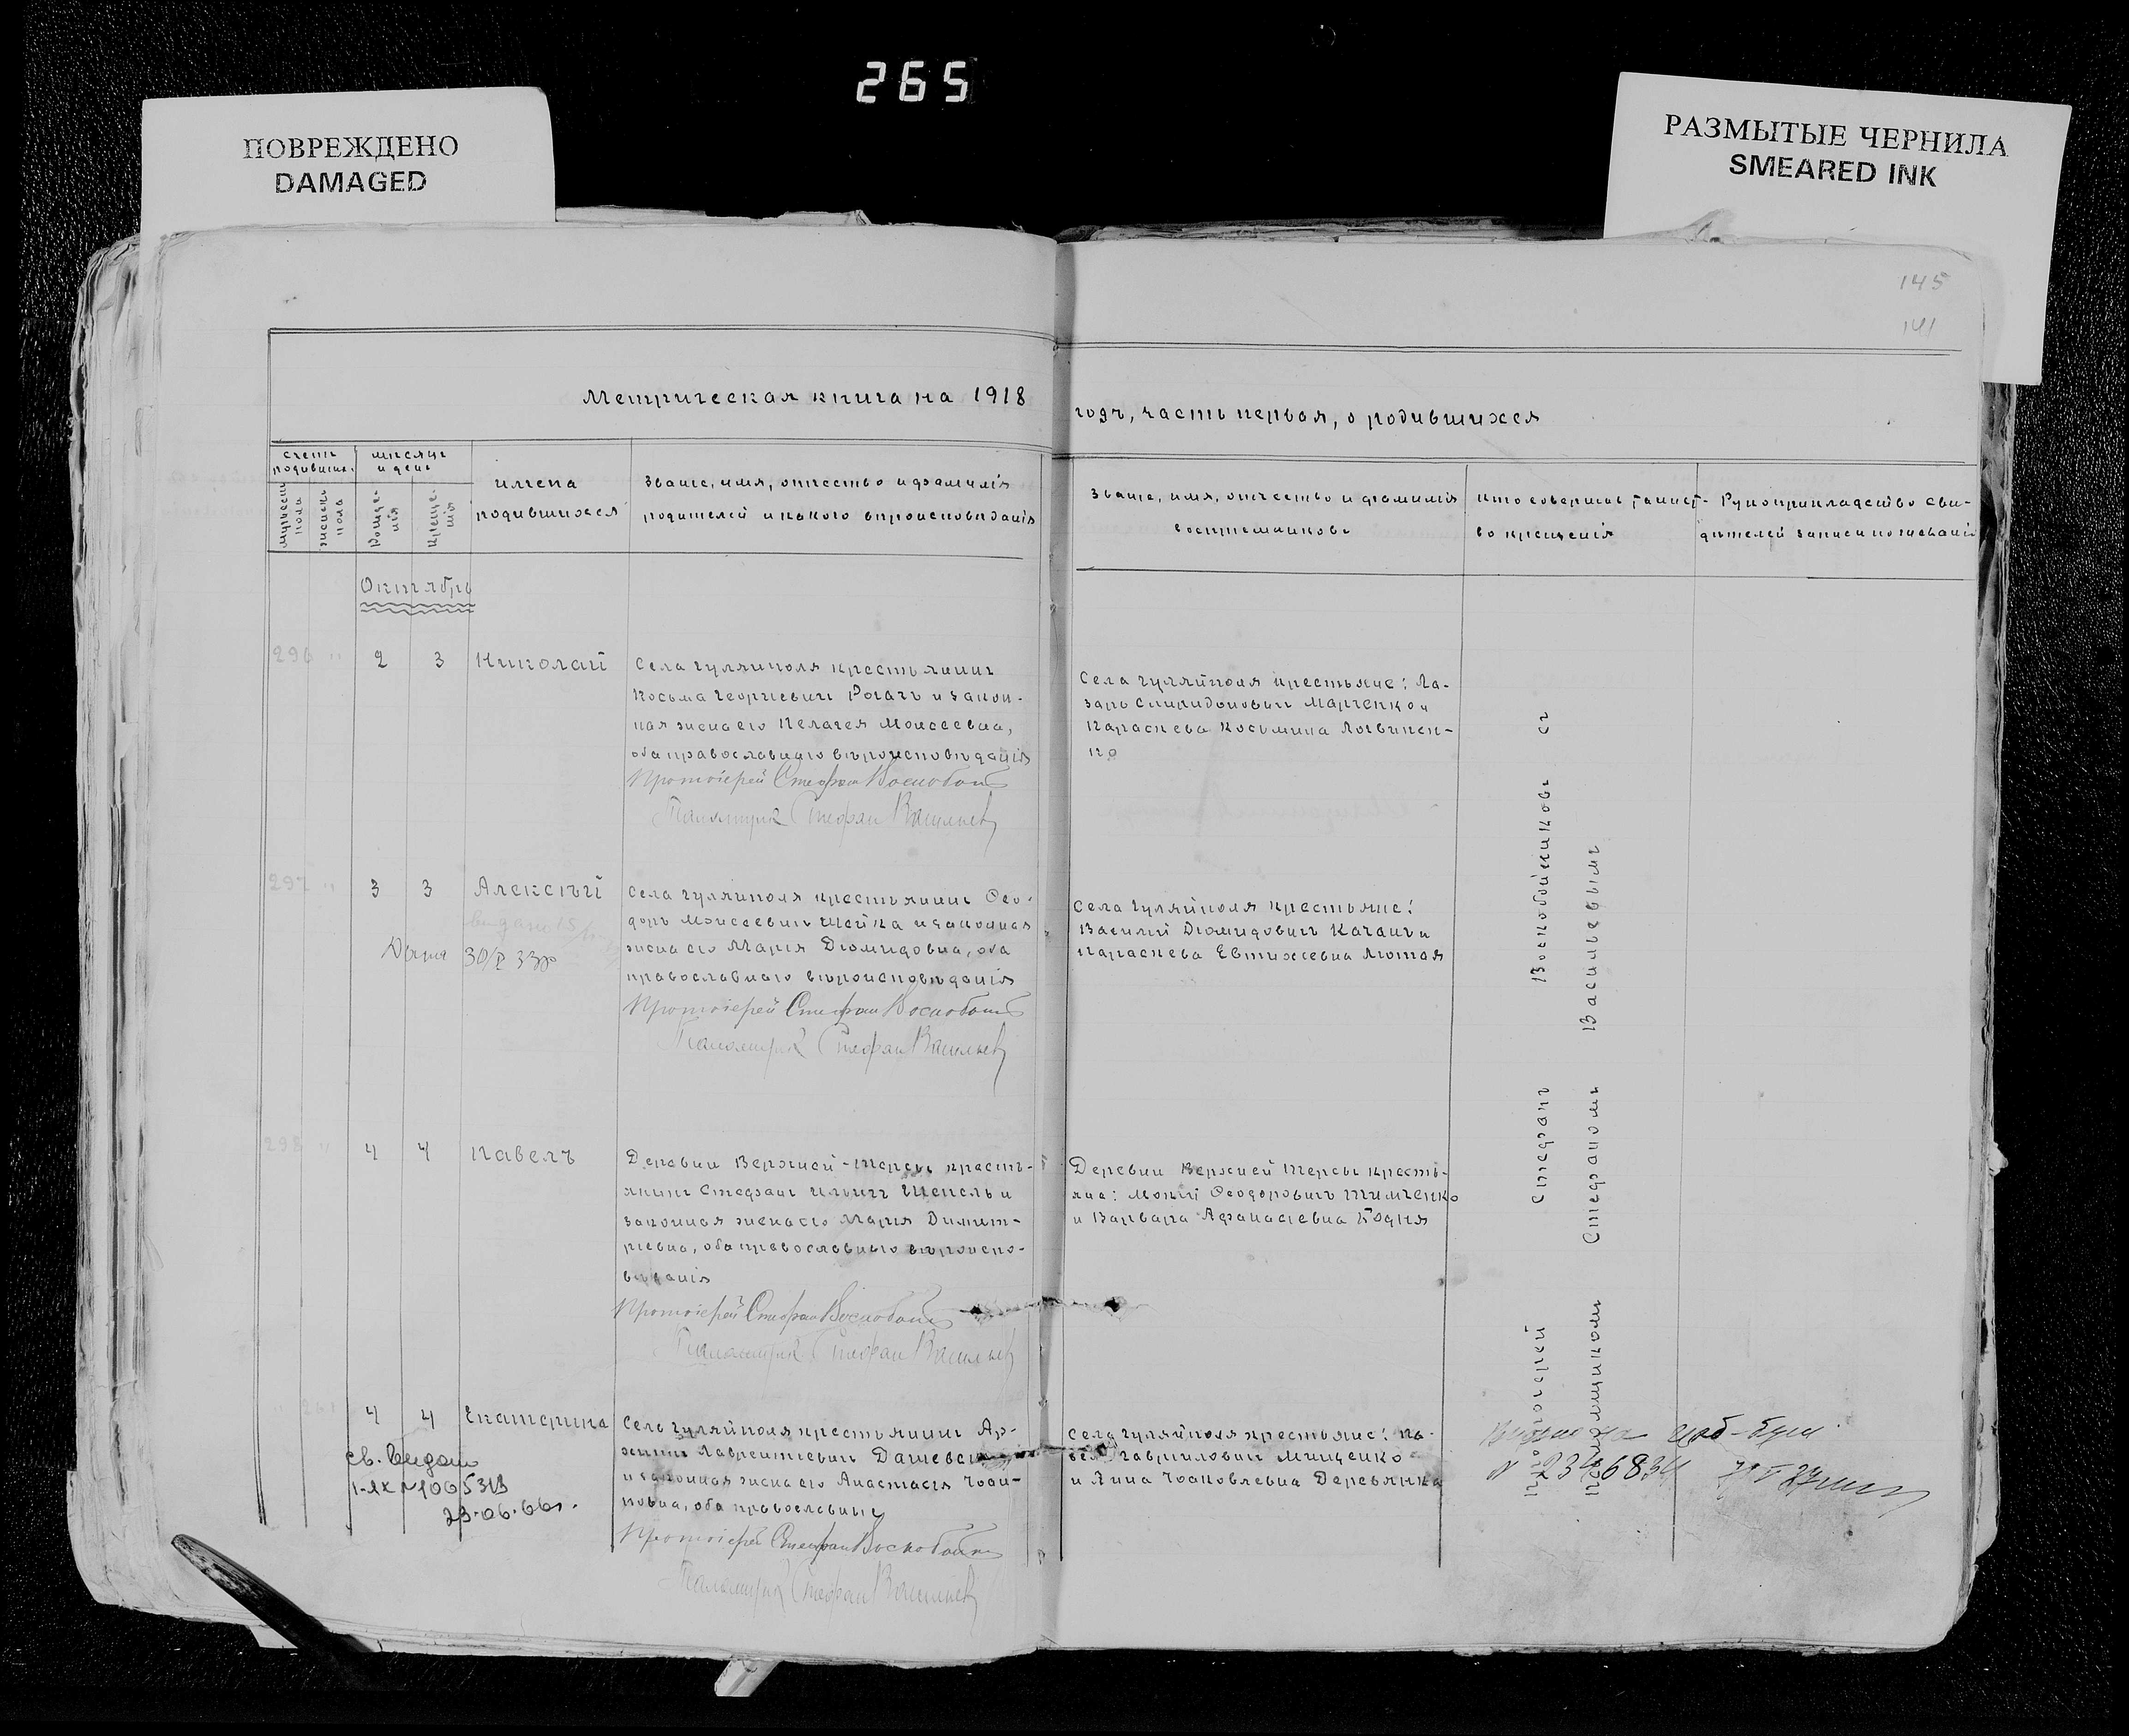 265
ПОВРЕЖДЕНО
DAMAGED
РАЗМЫТЫЕ ЧЕРНИЛА
SMEARED INK
145
141
Метрическая книга на 1918
годъ, часть первая, о родившихся
счетъ родивших.
мѣсяцъ и день
мужеска пола
женска пола
Рожде-
нія
Креще-
нія
имена
родившихся
Званіе, имя, отчество и фамилія
родителей и какого вѣроисповѣданія
Званіе, имя, отчество и фамилія
воспріемниковъ
кто совершал таинст-
во крещенія
Рукоприкладство сви-
дѣтелей записи по желанію
Октябрь
296 " 2 3 Николай
Села Гуляйполя крестьянинъ
Косьма Георгіевичъ Рогачъ и закон-
ная жена его Пелагея Моисеевна,
оба православнаго вѣроисповѣданія
Протоіерей Стефан Воскобойн
Псаломщик Стефан Васильев
Села Гуляйполя крестьяне: Ла-
зарь Спиридоновичъ Марченко и
Параскева Косьмина Логвинен-
ко
297 " 3 3 Алексѣй
выдано
30/X 33
Села Гуляйполя крестьянинъ Ѳео-
доръ Моисеевичъ Шейка и законная
жена его Марія Діомидовна, оба
православнаго вѣроисповѣданія
Протоіерей Стефан Воскобойн
Псаломщик Стефан Васильев
Села Гуляйполя крестьяне:
Василій Діомидовичъ Качанъ и
Параскева Евтихіевна Лютая
298 " 4 4 Павелъ
Деревни Верхней-Терсы кресть-
янинъ Стефанъ Ильичъ Шепель и
законная жена его Марія Димит-
ріевна, оба православнаго вѣроиспо-
вѣданія
Протоіерей Стефан Воскобойн
Псаломщик Стефан Васильев
Деревни Верхней Терсы кресть-
яне: Мокій Ѳеодоровичъ Тимченко
и Варвара Афанасіевна Бодня
" 4 4 Екатерина
св. выдано
I-ЯК №1065313
23.06.66г.
Села Гуляйполя крестьянинъ Ар-
Лаврентіевичъ
и законная жена его Анастасія Іоан-
новна, оба православные
Протоіерей Стефан Воскобойн
Псаломщик Стефан Васильев
Села Гуляйполя крестьяне: Па-
велъ Гавриловичъ Мищенко
и Анна Іоаковлевна Деревянка
Протоіерей Стефанъ Воскобойниковъ съ
псаломщикомъ Стефаномъ Васильевымъ
№ 2346834